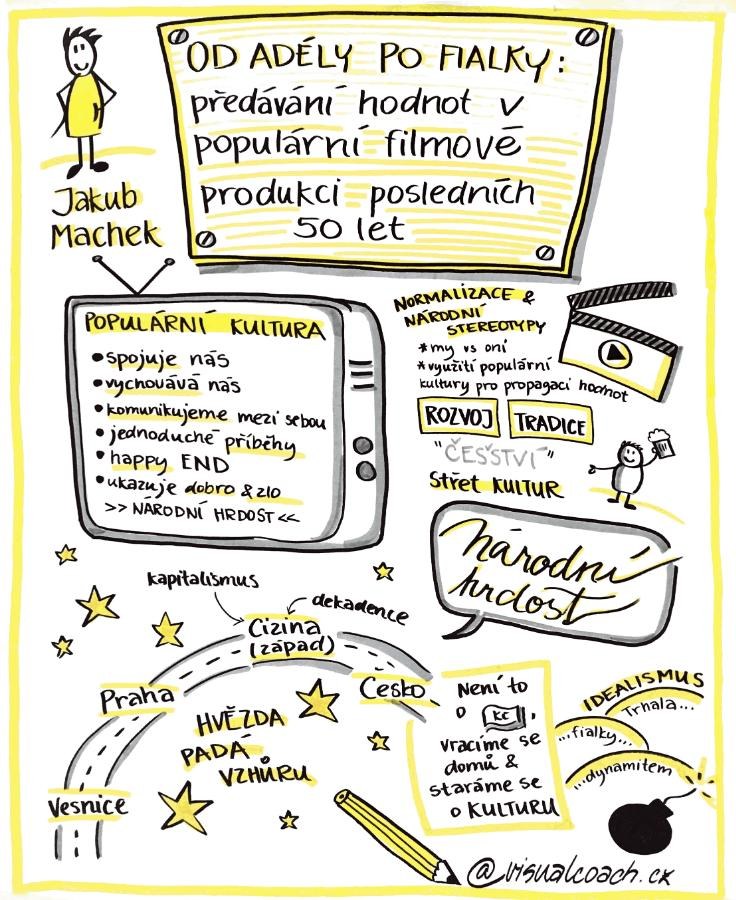 OD ADÉLY PO FIALKY:
předávání hodnot v
populární filmové
produkci posledních
50 let
Jakub
Machek
POPULÁRNÍ KULTURA
• spojuje nás
• vychovává nás
• komunikujeme mezi sebou
• jednoduché příběhy
• happy END
• ukazuje dobro & zlo
>> NÁRODNÍ HRDOST <<
NORMALIZACE &
NÁRODNÍ
STEREOTYPY
* my vs oni
* využití populární
kultury pro propagaci hodnot
ROZVOJ
TRADICE
"ČEŠSTVÍ"
Střet KULTUR
Národní
hrdost
kapitalismus
dekadence
Cizina
(západ)
Praha
Česko
Vesnice
HVĚZDA
PADÁ
VZHŮRU
Není to
o KČ,
vracíme se
domů &
staráme se
o KULTURU
IDEALISMUS
Trhala...
...fialky...
...dynamitem
@visualcoach.cz